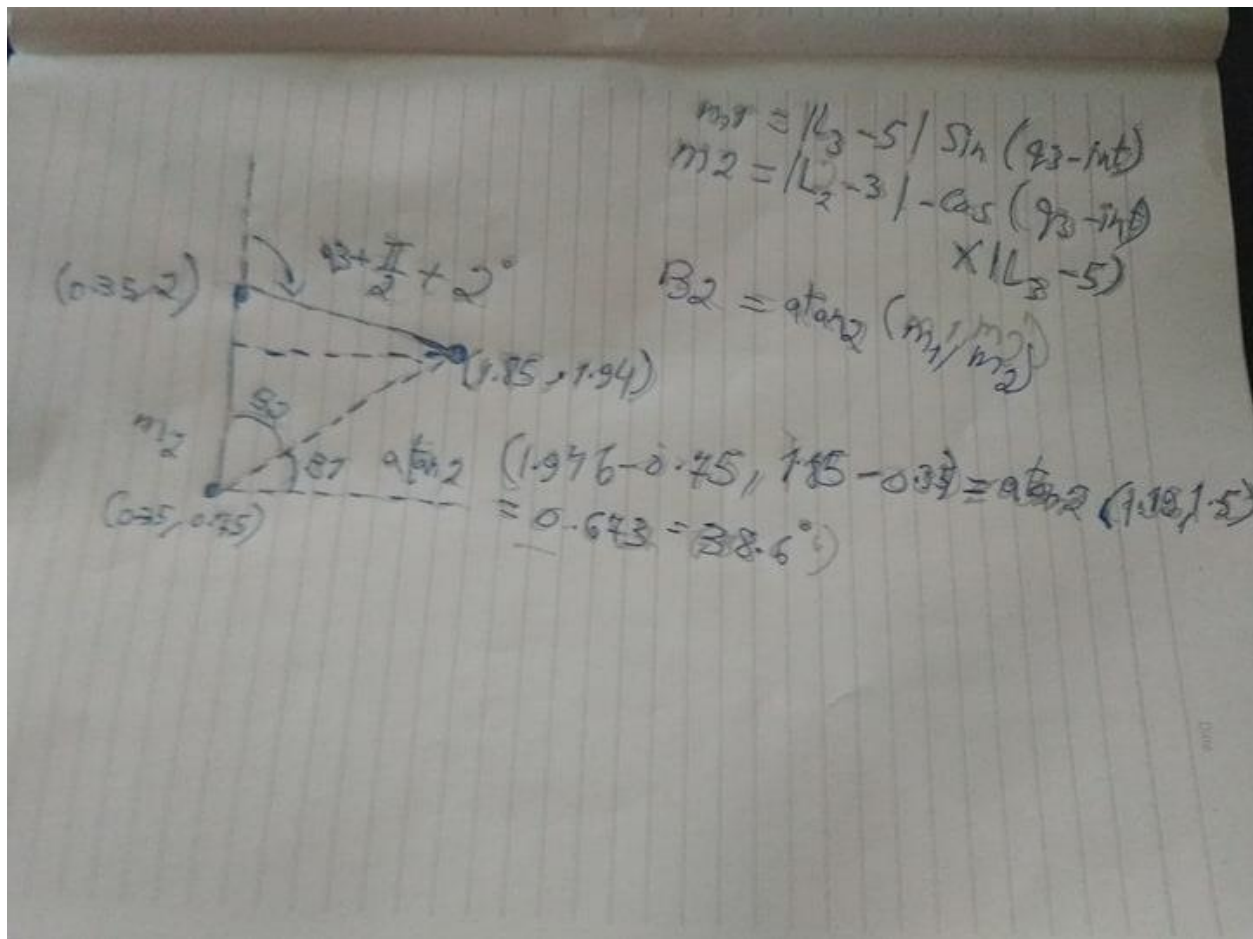 m1 = |L3-5| Sin (q3-int)
m2 = |L2-3| - Cos (q3-int)
X |L3-5)
B2 = atan2 (m1, m2)
q3 + π/2 + 2°
(0.35, 2)
(1.85, 1.94)
m2
B2
B1 atan2 (1.946-0.75, 1.85-0.35) = atan2 (1.19, 1.5)
(0.35, 0.75)
= 0.673 = 38.6°)
Date